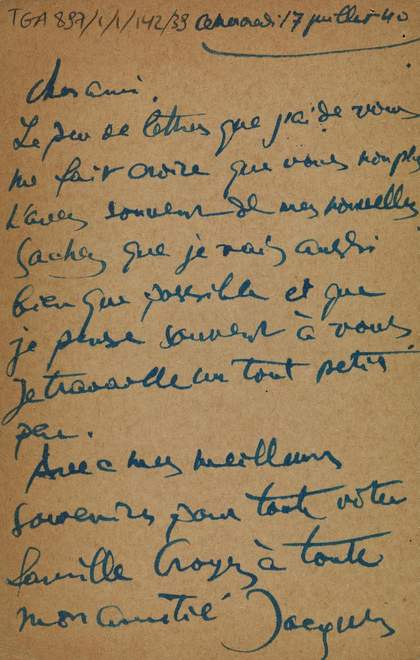 TGA 897/1/1/142/39 mercredi 17 juillet 40
Cher ami.
Le peu de lettres que j'ai de vous
me fait croire que vous non plus
n'avez souvent de mes nouvelles
Sachez que je vais aussi
bien que possible et que
je pense souvent à vous
Je travaille un tout petit
peu.
Avec mes meilleurs
souvenirs pour toute votre
famille Croyez à toute
mon amitié Jacques